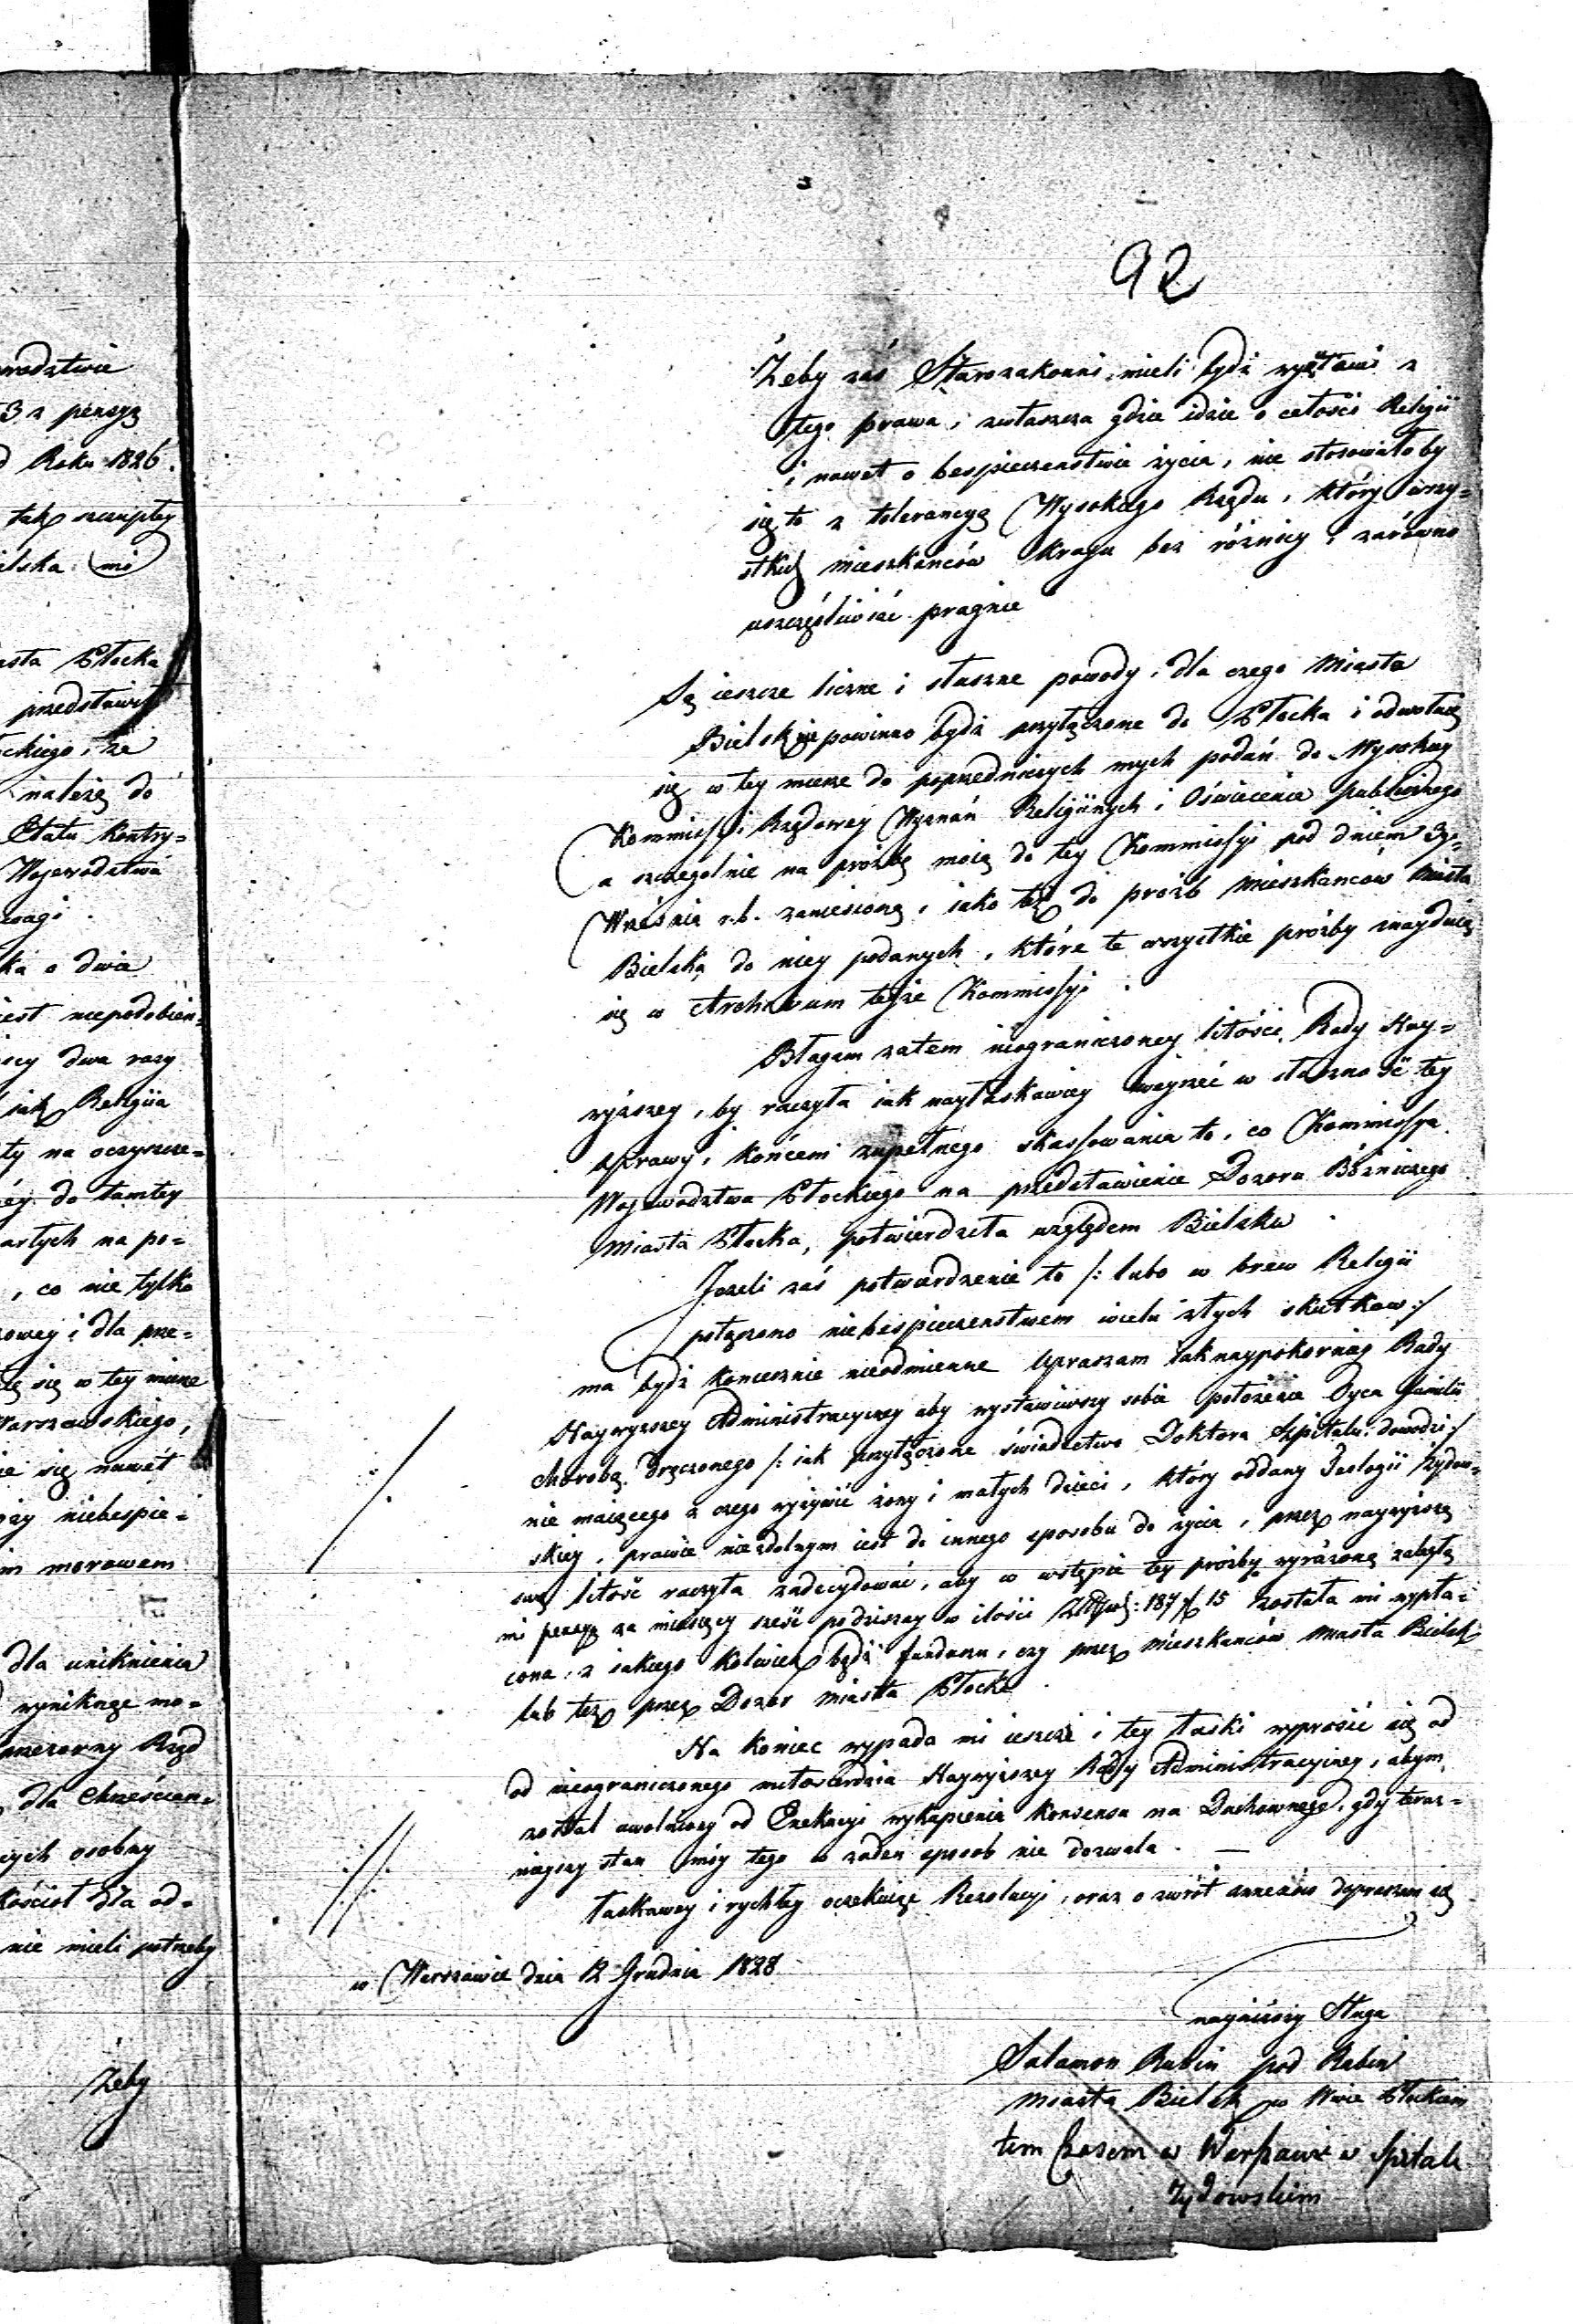 92
Żeby zaś Starozakonni mieli bydź wyięteni z
tego prawa, zwłaszcza gdzie idzie o całości Religii
i nawet o bespieczenstwie życia, nie stosowałoby
się to z tolerancyą Wysokiego Rządu, który wszy=
stkich mieszkańców Kraju bez różnicy, zarówno
uszczęśliwiać pragnie
Są ieszcze liczne i słuszne powody, dla czego Miasto
Bielsk nie powinno bydź przyłączone do Płocka i odwołuię
się w tey mierze do poprzedniczych mych podań do Wysokiey
Kommissyi Rządowey Wyznań Religiinych i Oświecenia publicznego
a szczególnie na prośbę moią do tey Kommissyi pod dniem 3go
Wrześnią r.b. zaniesioną, iako też do prośb mieszkancow Miasta
Bielska do niey podanych, które te wszystkie prośby znayduią
się w Archivum teyże Kommissyi.
Błagam zatem nieograniczoney litości Rady Nay=
wyższey, by raczyła iak nayłaskawiey weyrzeć w słuszność tey
sprawy, końcem zupełnego skassowania to, co Kommissya
Wojewodztwa Płockiego na przedstawienie Dozoru Bóźniczego
Miasta Płocka, potwierdziła względem Bielska.
Jeżeli zaś potwierdzenie to /: lubo w brew Religii
połączono niebespieczenstwem wielu złych skutkow :/
ma bydź koniecznie nieodmienne Upraszam iak naypokorniey Rady
Naywyższey Administracyiney aby wystawiwszy sobie położenie Oyca familii
chorobą dręczonego /: iak przyłączone świadectwo Doktora Szpitalu dowodzi :/
nie maiącego z czego wyżywić żony i małych dzieci, który oddany Teologii Żydow=
skiey, prawie niezdolnym iest do innego sposobu do życia, przez naywyższą
swą litość raczyła zadecydować, aby w wstępie tey prośby wyrażoną zaległą
mi pensyą za miesięcy sześć podziszay w ilości 187 15 została mi wypła=
cona, z iakiego kolwiek bądź funduszu, czy przez mieszkanców miasta Bielsk
lub też przez Dozor miasta Płocka.
Na koniec wypada mi ieszcze i tey łaski wyprosić się od
od nieograniczonego miłosierdzia Naywyższey Rady Administracyiney, abym
został uwolniony od Exekucyi wykupienia konsensu na Duchownego, gdy teraz=
nieyszy stan móy tego w żaden sposob nie dozwala. —
Łaskawey i rychłey oczekuię Rezolucyi, oraz o zwrót annexów dopraszam się
w Warszawie dnia 12 Grudnia 1828
nayniższy Sługa
Salamon Rabin pod Rabin
miasta Bielsk w Wwie Płockiem
tem Czasem w Warszawie w Szpitalu
Żydowskim
wodztwie
3 z pensyą
Roku 1826.
tak szczupłey
mi
Płocka
przedstawił
ckiego, że
należą do
Etatu Kontry=
Wojewodztwa
uwagi.
ka o dwie
iest niepodobień=
dwa razy
iak Religiia
ty na oczyszcze=
do tamtey
artych na po=
, co nie tylko
owey i dla prze=
się w tey mierze
Warszawskiego,
się nawét
niebespie=
morowem
dla uniknienia
wyniknąć mo=
przezorny Rząd
dla Chrześcian=
osobny
kościoł dla od=
nie mieli potrzeby
Żeby